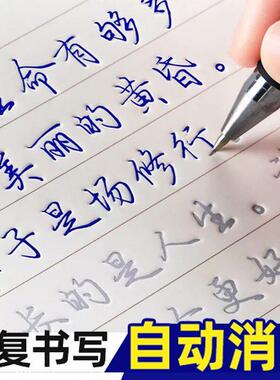 命有够多
美丽的黄昏。
子是场修行
长的是人生。
更好
复书写 自动消